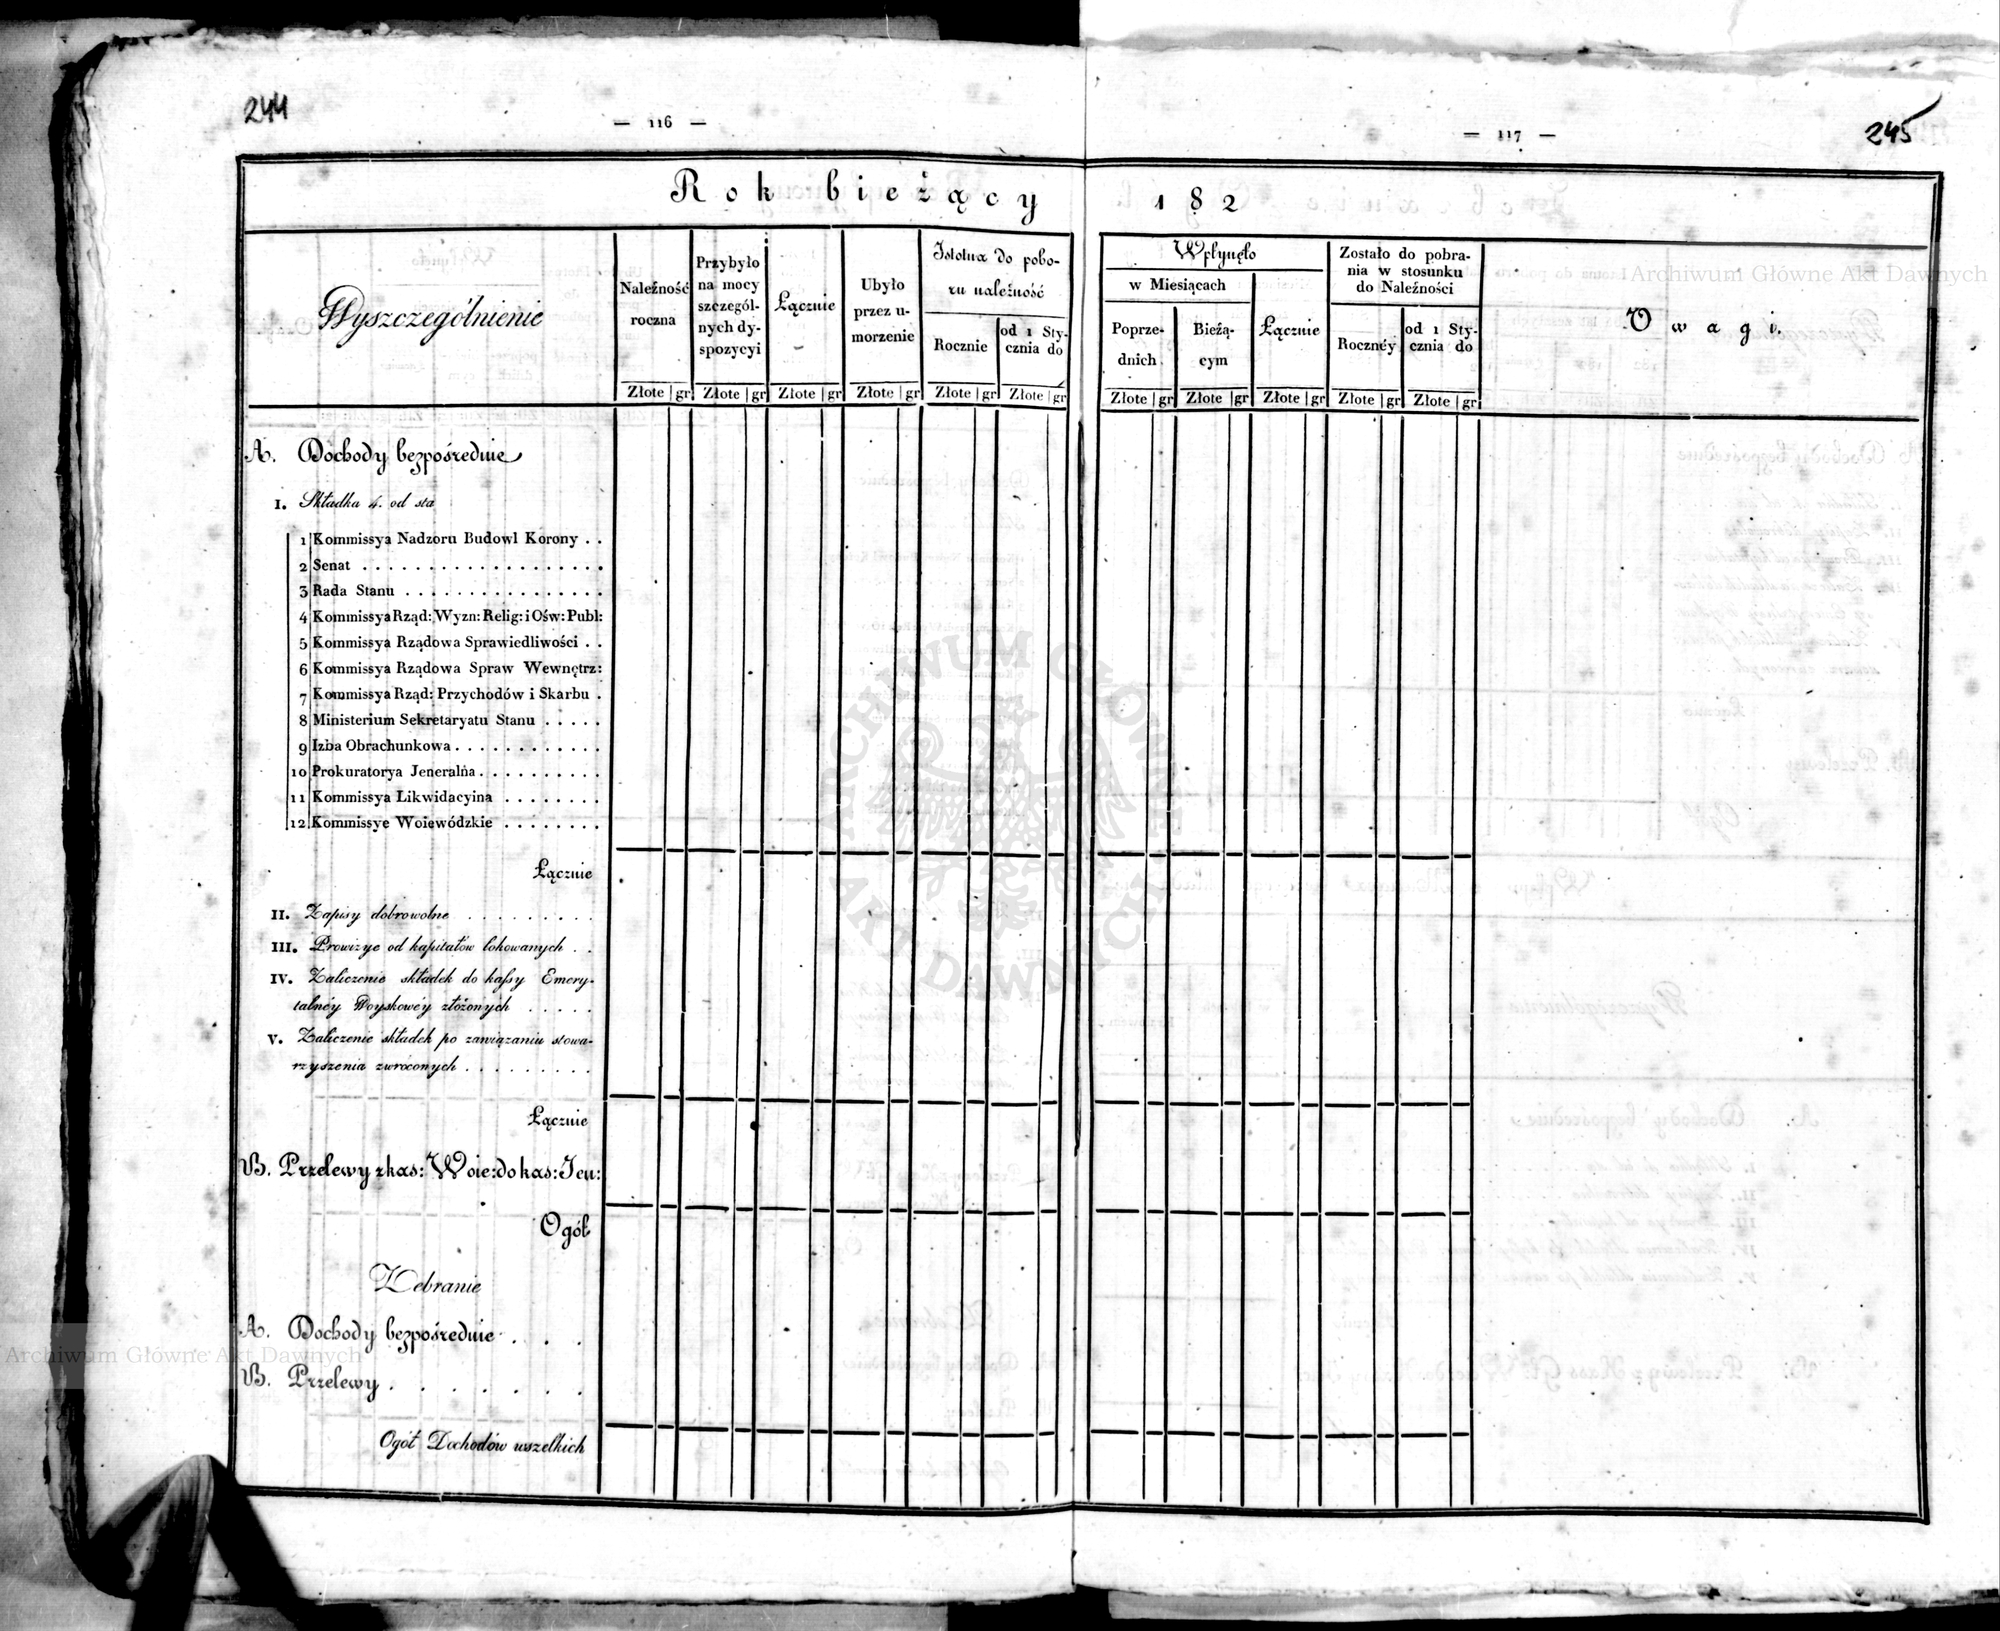 244
— 116 —
— 117 —
245
Rok bieżący 182
Wyszczególnienie
Należność
roczna
Przybyło
na mocy
szczegól-
nych dy-
spozycyi
Łącznie
Ubyło
przez u-
morzenie
Istotna do pobo-
ru należność
Rocznie
od 1 Sty-
cznia do
Wpłynęło
w Miesiącach
Poprze-
dnich
Bieżą-
cym
Łącznie
Zostało do pobra-
nia w stosunku
do Należności
Rocznéy
od 1 Sty-
cznia do
Uwagi.
Złote gr Złote gr Złote gr Złote gr Złote gr Złote gr Złote gr Złote gr Złote gr Złote gr Złote gr
A. Dochody bezpośrednie
I. Składka 4. od sta
1 Kommissya Nadzoru Budowl Korony . .
2 Senat . . . . . . . . . . . . . . . . . . .
3 Rada Stanu . . . . . . . . . . . . . . . .
4 Kommissya Rząd: Wyzn: Relig: i Ośw: Publ:
5 Kommissya Rządowa Sprawiedliwości . .
6 Kommissya Rządowa Spraw Wewnętrz:
7 Kommissya Rząd: Przychodów i Skarbu .
8 Ministerium Sekretaryatu Stanu . . . . .
9 Izba Obrachunkowa . . . . . . . . . . . .
10 Prokuratorya Jeneralna . . . . . . . . . .
11 Kommissya Likwidacyina . . . . . . . .
12 Kommissye Woiewódzkie . . . . . . . .
Łącznie
II. Zapisy dobrowolne . . . . . . . . . .
III. Prowizye od kapitałów lokowanych . .
IV. Zaliczenie składek do kassy Emery-
talnéy Woyskowéy złożonych . . . . .
V. Zaliczenie składek po zawiązaniu stowa-
rzyszenia zwróconych . . . . . . . . .
Łącznie
B. Przelewy z kas: Woie: do kas: Jen:
Ogół
Zebranie
A. Dochody bezpośrednie . . .
B. Przelewy . . . . . . .
Ogół Dochodów wszelkich
Archiwum Główne Akt Dawnych
Archiwum Główne Akt Dawnych
ARCHIWUM GŁÓWNE
AKT DAWNYCH